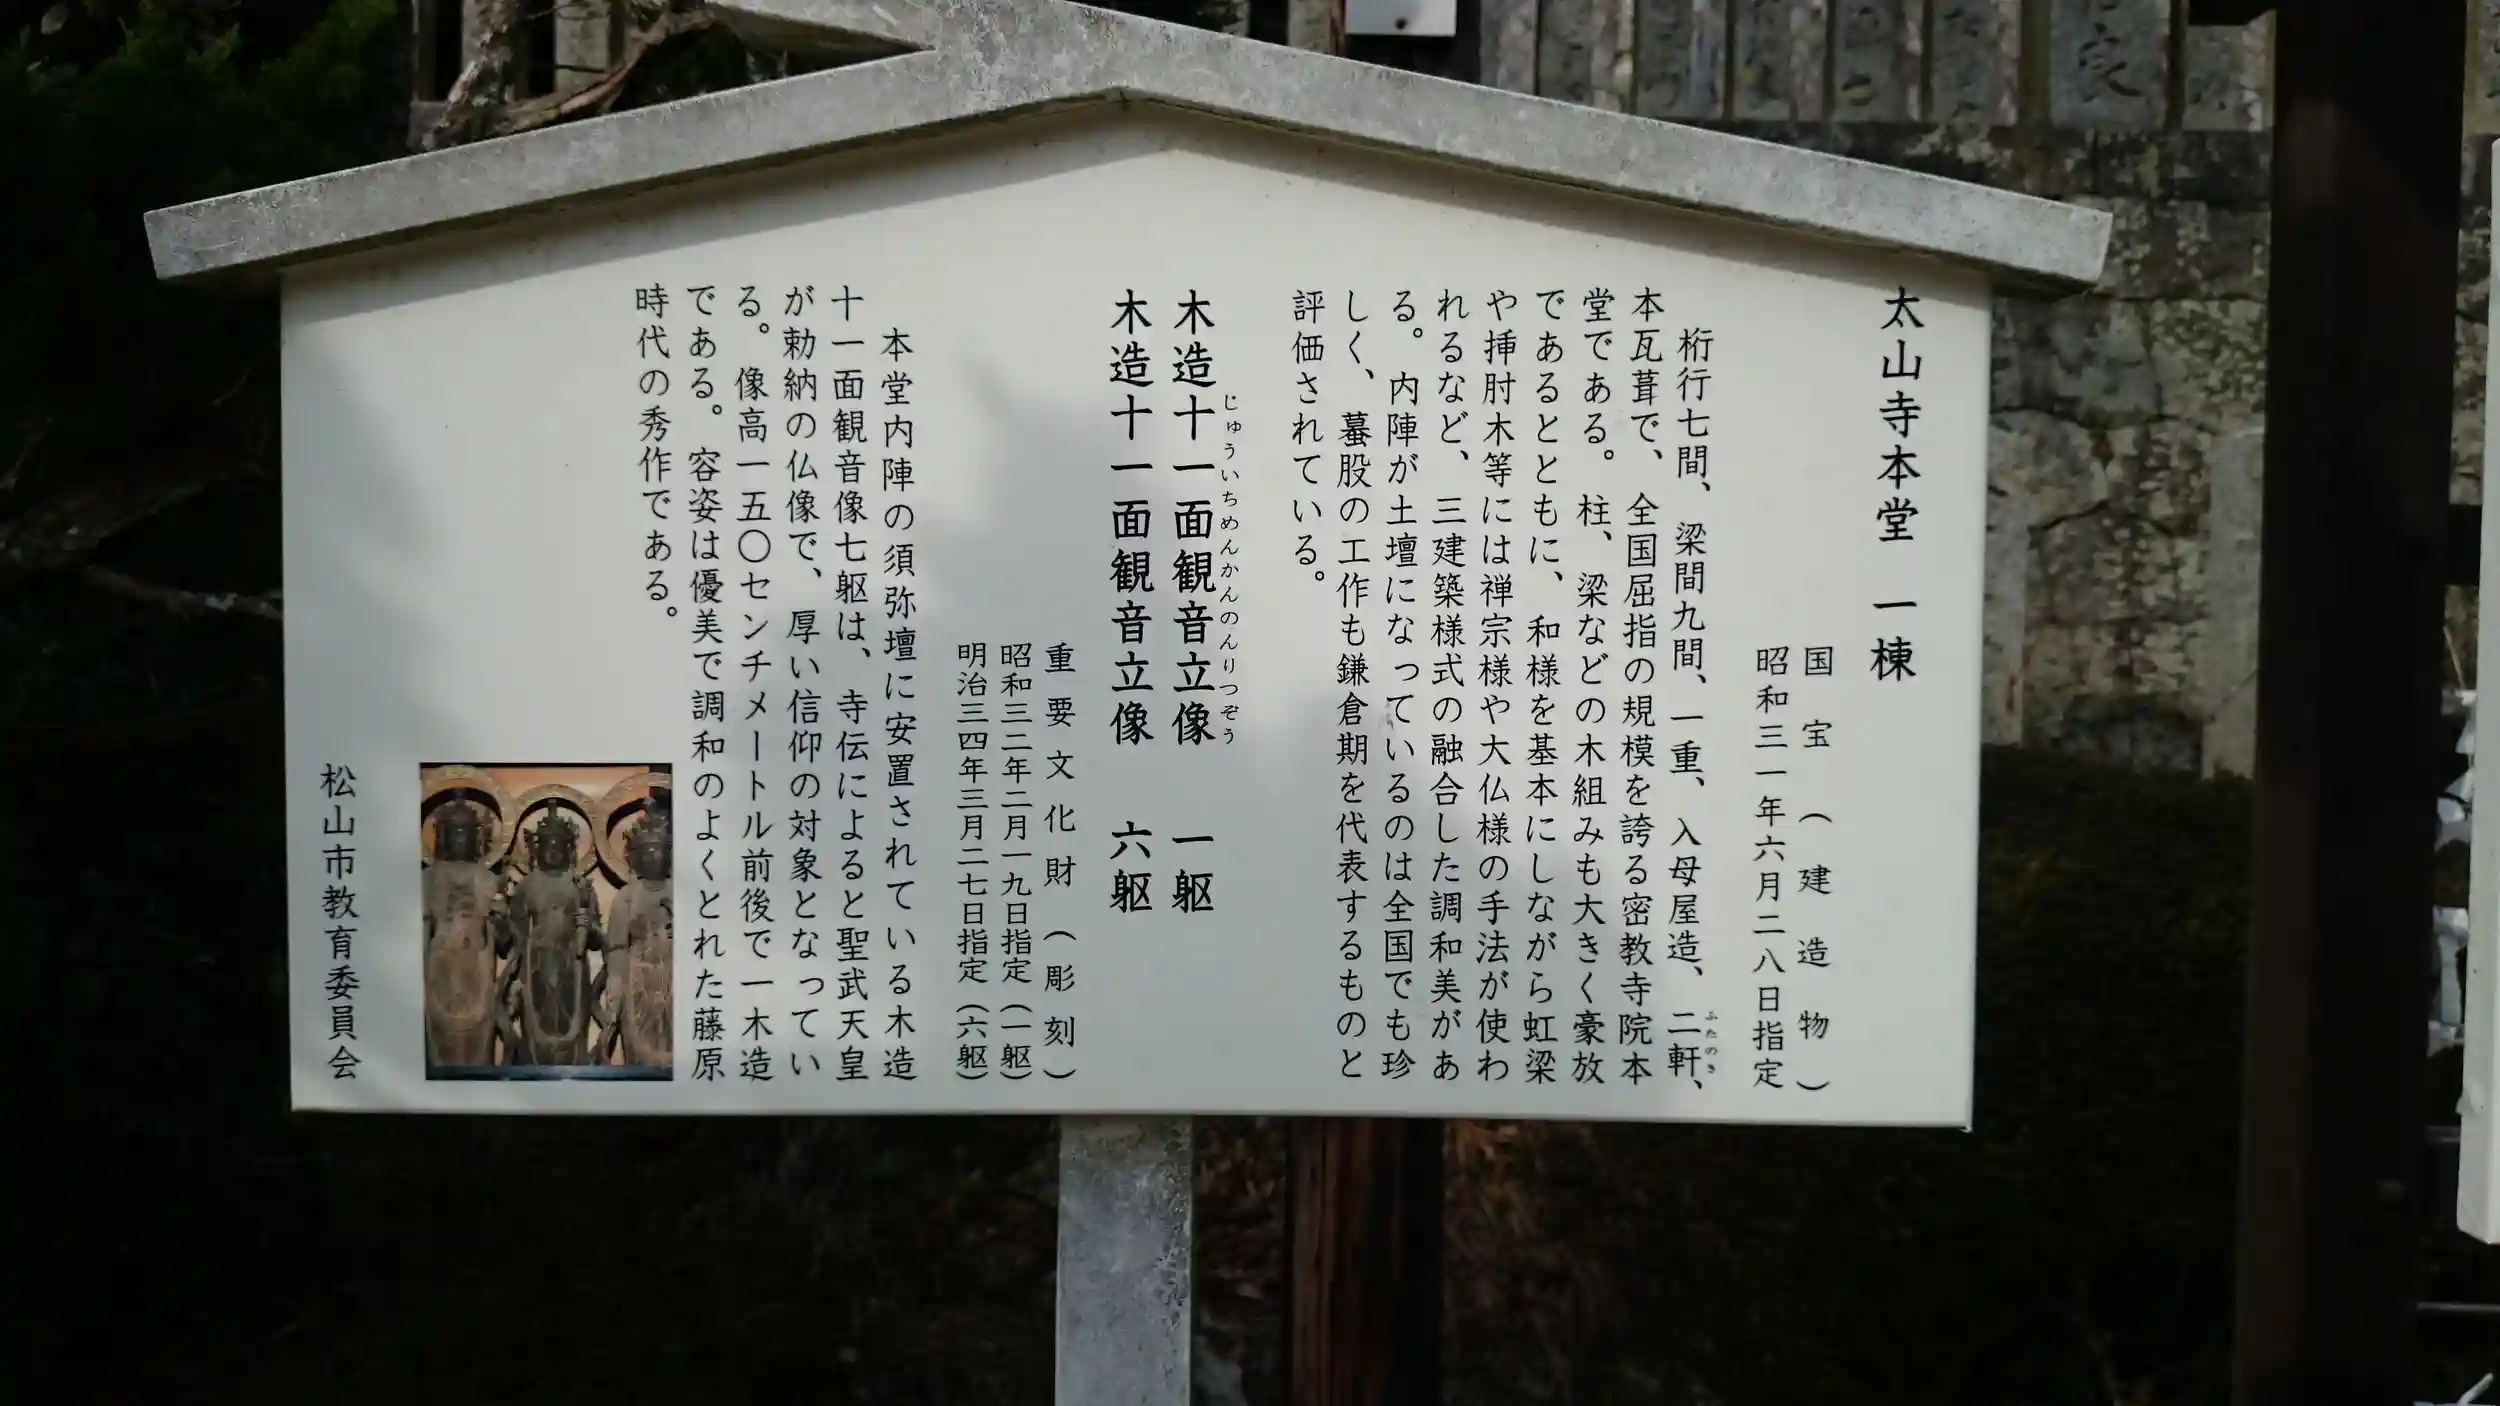 太山寺本堂　一棟
国宝（建造物）
昭和三一年六月二八日指定
桁行七間、梁間九間、一重、入母屋造、二軒、
ふたのき
本瓦葺で、全国屈指の規模を誇る密教寺院本
堂である。柱、梁などの木組みも大きく豪放
であるとともに、和様を基本にしながら虹梁
や挿肘木等には禅宗様や大仏様の手法が使わ
れるなど、三建築様式の融合した調和美があ
る。内陣が土壇になっているのは全国でも珍
しく、蟇股の工作も鎌倉期を代表するものと
評価されている。
じゅういちめんかんのんりつぞう
木造十一面観音立像　一躯
木造十一面観音立像　六躯
重要文化財（彫刻）
昭和三二年二月一九日指定（一躯）
明治三四年三月二七日指定（六躯）
本堂内陣の須弥壇に安置されている木造
十一面観音像七躯は、寺伝によると聖武天皇
が勅納の仏像で、厚い信仰の対象となってい
る。像高一五〇センチメートル前後で一木造
である。容姿は優美で調和のよくとれた藤原
時代の秀作である。
松山市教育委員会